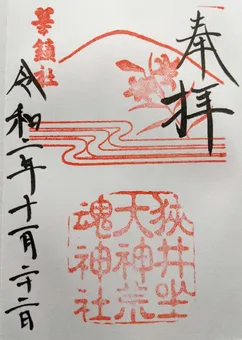 奉拝
狭井坐
大神荒
魂神社
華鎮社
令和二年十一月二十二日